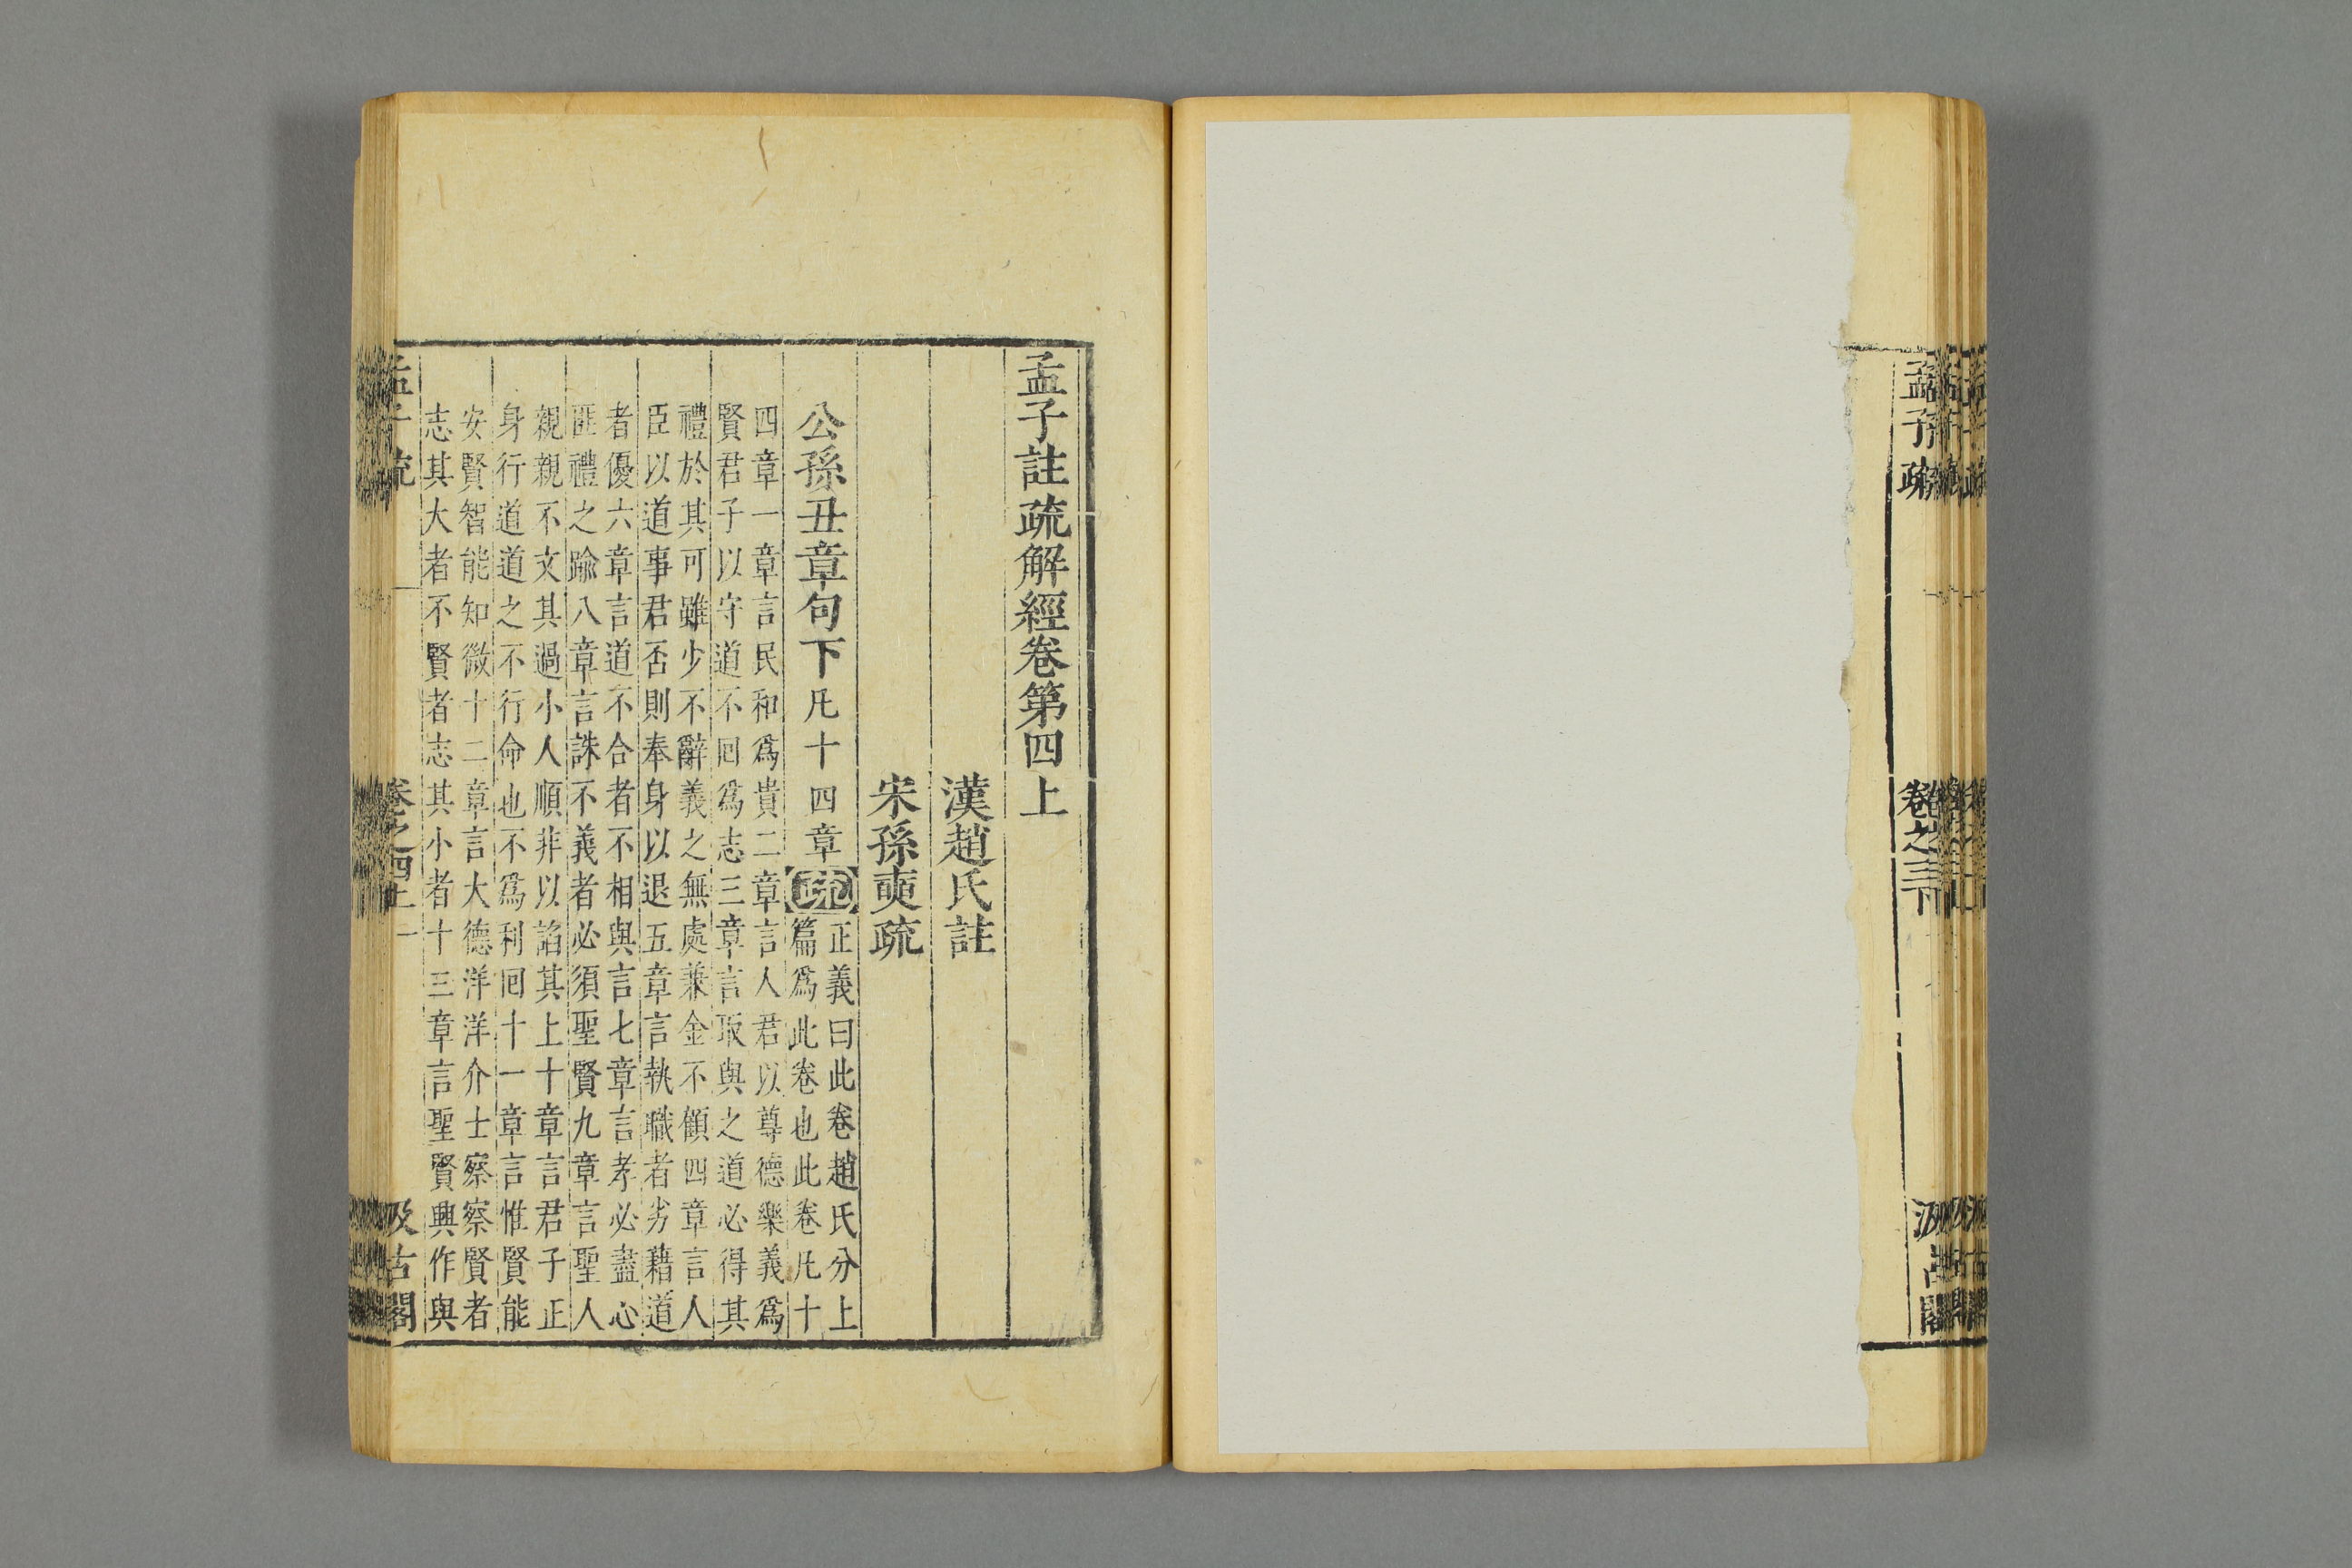 孟子疏
卷之三下
汲古閣
孟子註疏解經卷第四上
漢趙氏註
宋孫奭疏
公孫丑章句下凡十四章疏
正義曰此卷趙氏分上
篇爲此卷也此卷凡十
四章一章言民和爲貴二章言人君以尊德樂義爲
賢君子以守道不囘爲志三章言取與之道必得其
禮於其可雖少不辭義之無處兼金不顧四章言人
臣以道事君否則奉身以退五章言執職者劣藉道
者優六章言道不合者不相與言七章言孝必盡心
匪禮之踰八章言誅不義者必須聖賢九章言聖人
親親不文其過小人順非以諂其上十章言君子正
身行道道之不行命也不爲利囘十一章言惟賢能
安賢智能知微十二章言大德洋洋介士察察賢者
志其大者不賢者志其小者十三章言聖賢興作與
孟子疏
卷之四上
一
汲古閣